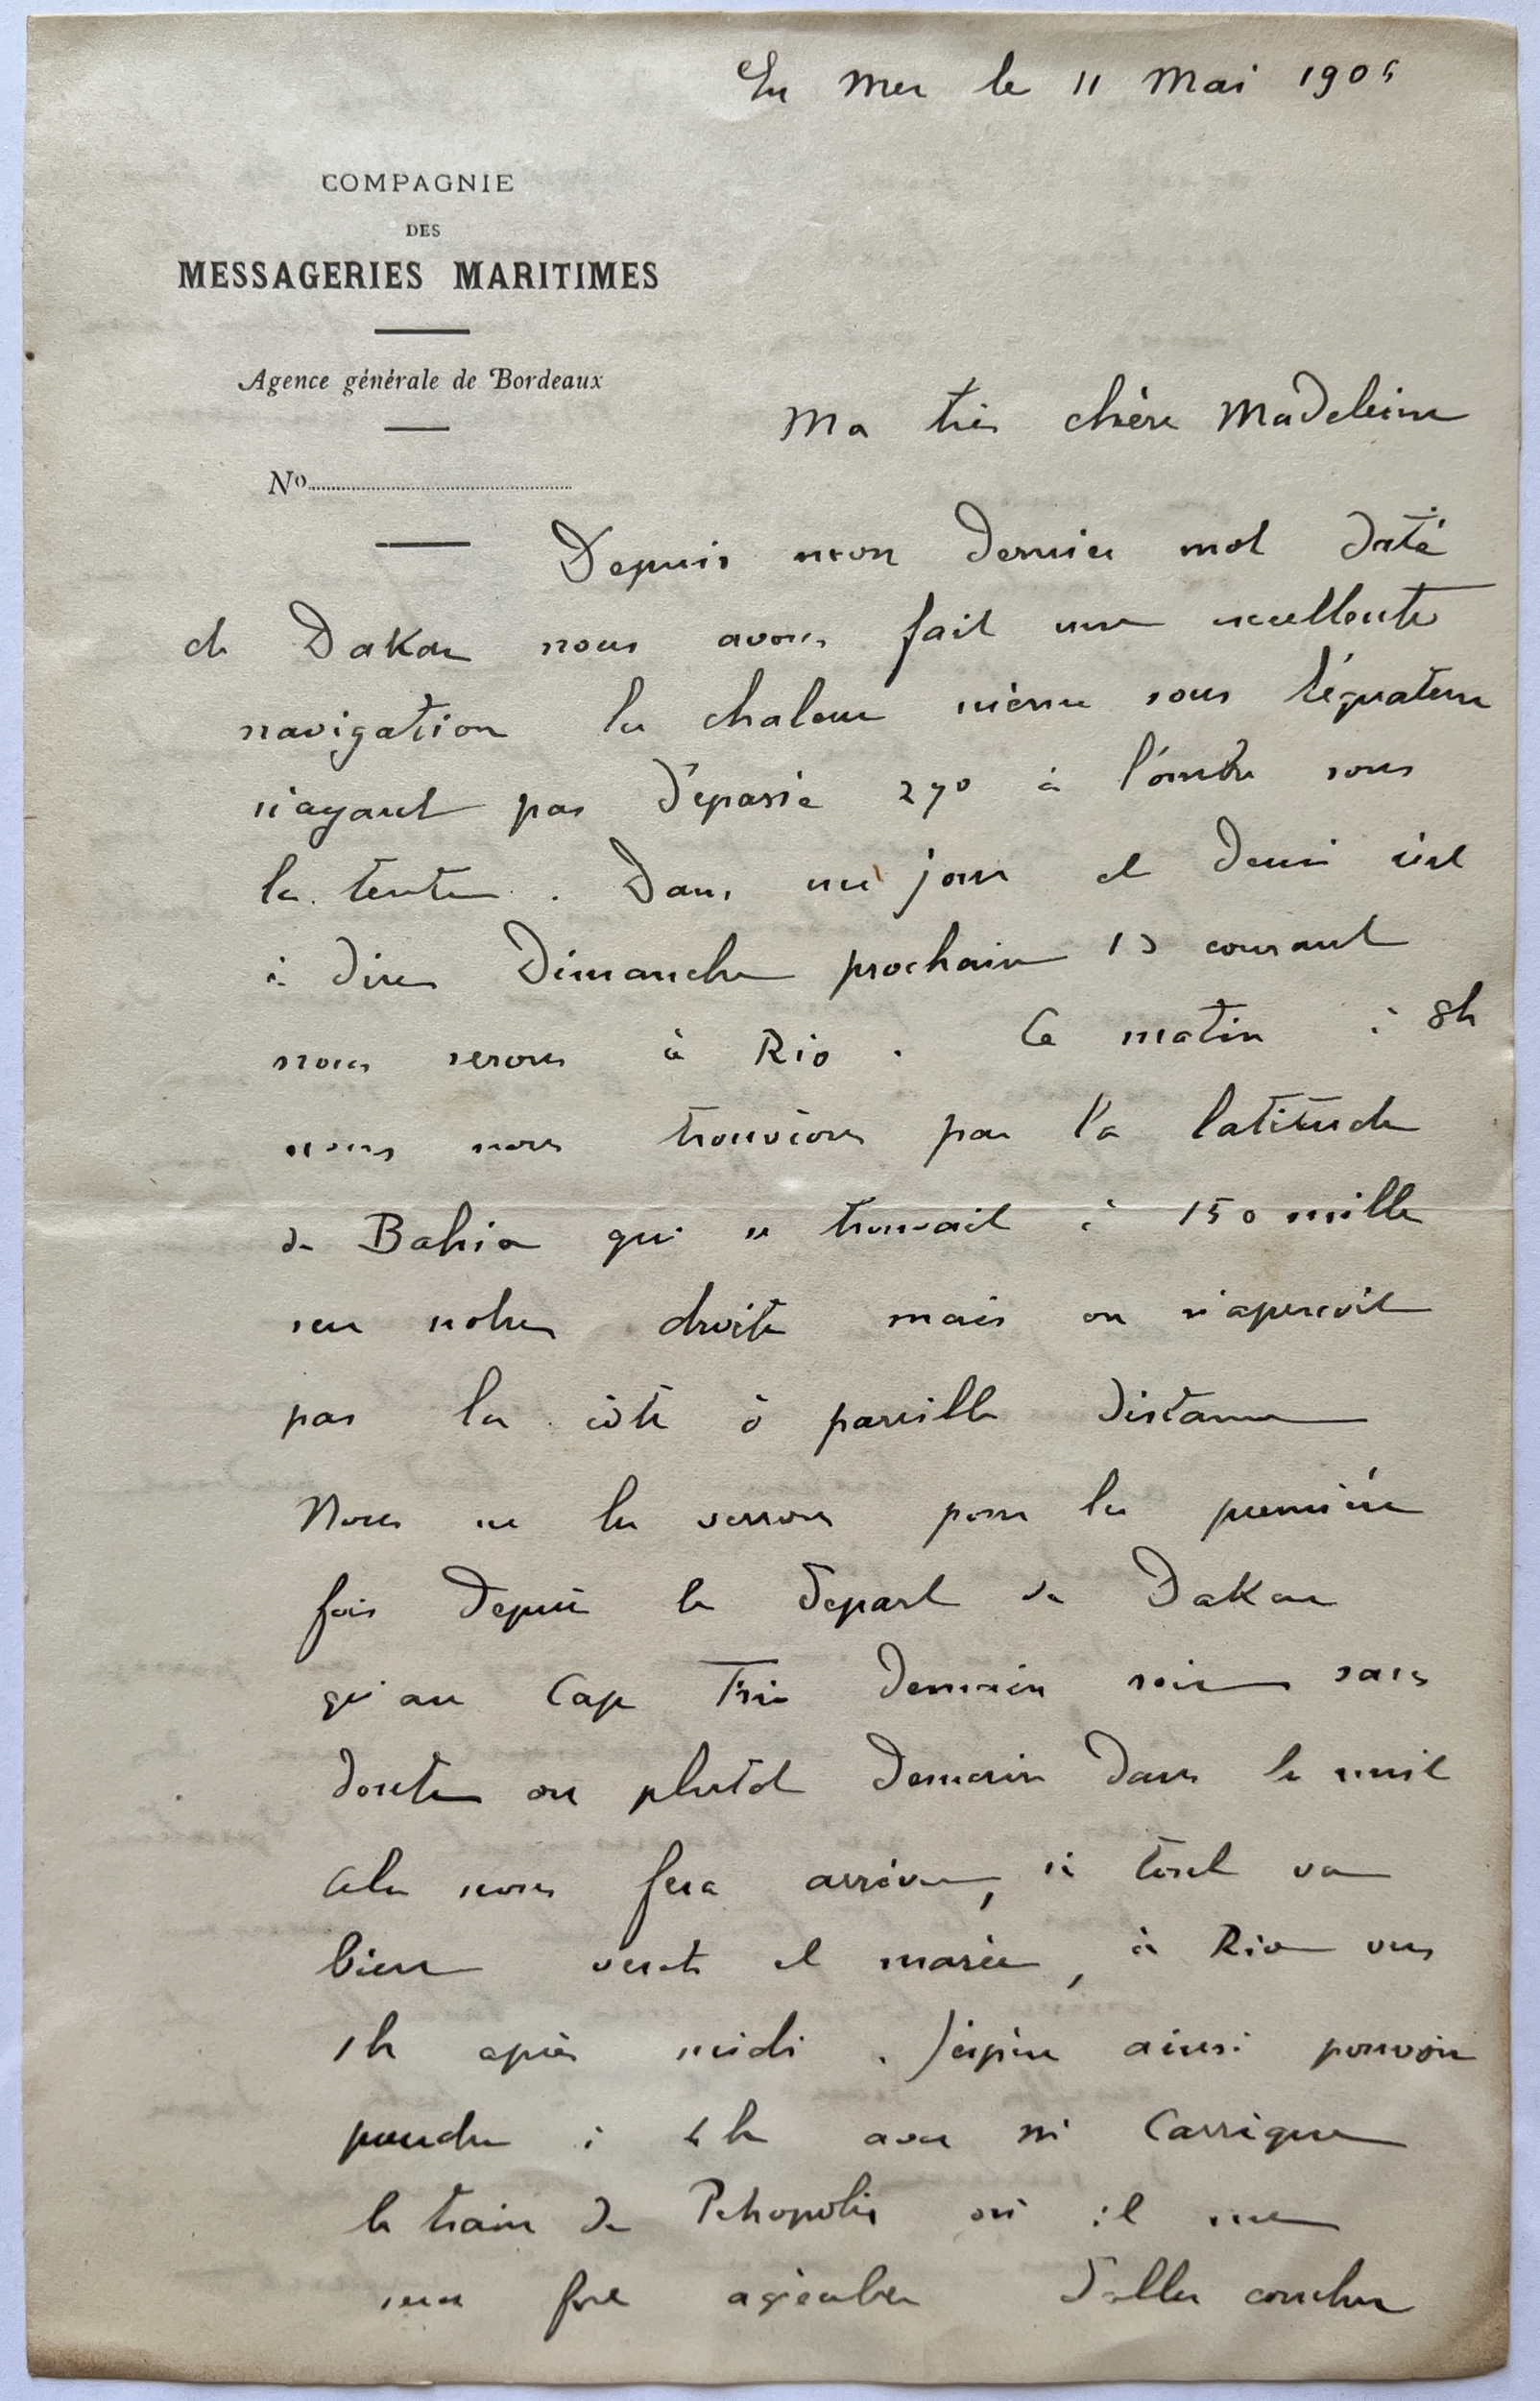 En Mer le 11 Mai 190
COMPAGNIE
DES
MESSAGERIES MARITIMES
Agence générale de Bordeaux
Ma très chère Madeleine
No
Depuis mon dernier mot daté
de Dakar nous avons fait une excellente
navigation la chaleur même sous l'équateur
n'ayant pas dépassé 27° à l'ombre sous
la tente. Dans un jour et demi c'est
à dire Dimanche prochain 13 courant
nous serons à Rio. Ce matin à 8h
nous nous trouvions par la latitude
de Bahia qui se trouvait à 150 mille
sur notre droite mais on n'aperçoit
pas la côte à pareille distance
Nous ne la verrons pour la première
fois depuis le départ de Dakar
qu'au Cap Frio demain soir sans
doute ou plutôt demain dans la nuit
Cela nous fera arriver, si tout va
bien vent et marée, à Rio vers
1h après midi. J'espère ainsi pouvoir
prendre à 4h avec Mr Carrique
le train de Petropolis où il me
sera fort agréable d'aller coucher